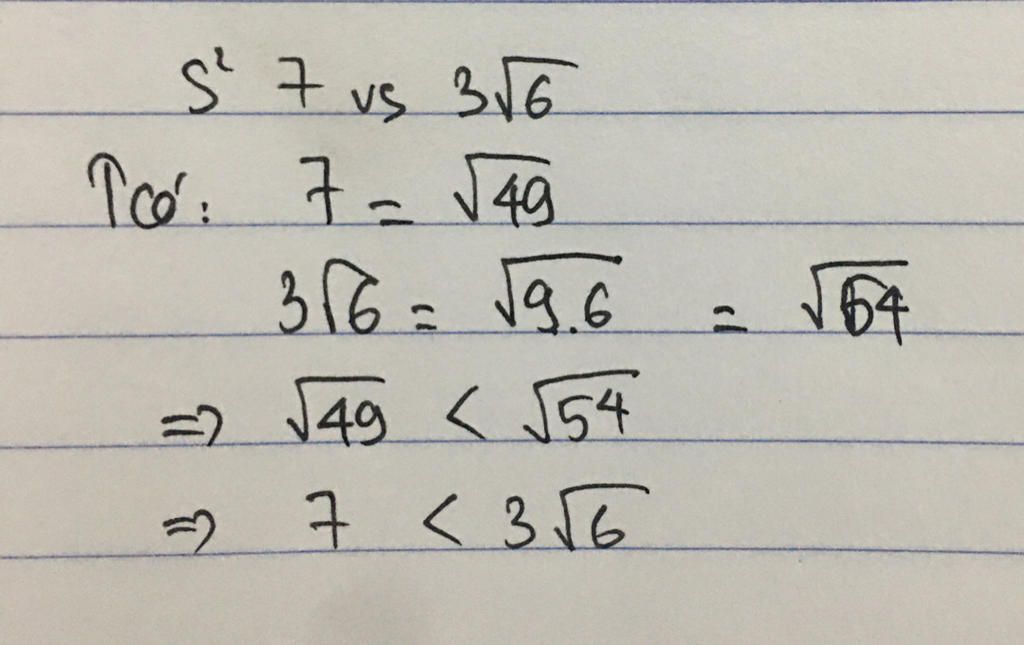 S² 7 vs 3√6
Tcó: 7 = √49
3√6 = √9.6 = √54
=> √49 < √54
=> 7 < 3√6